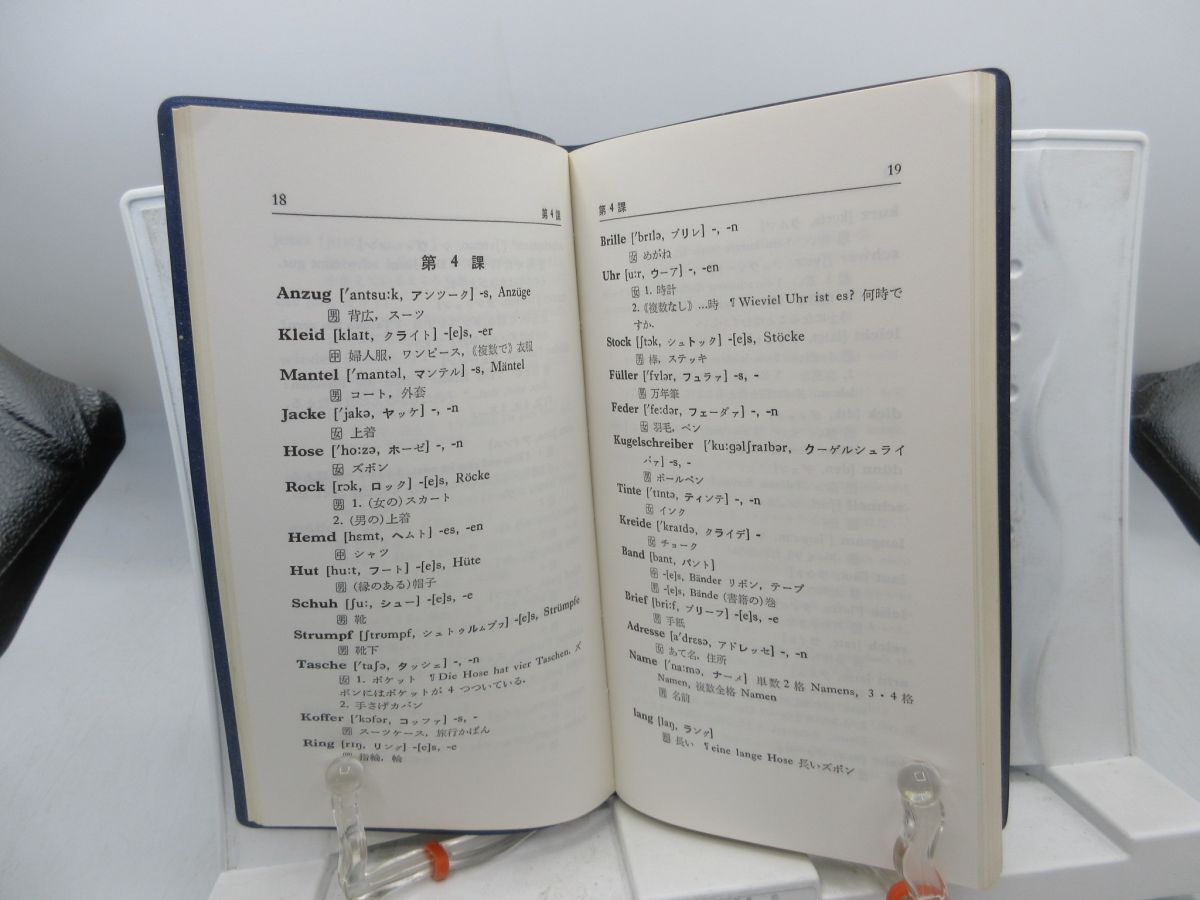 18
第4課
第 4 課
Anzug [ˈantsuːk, アンツーク] -s, Anzüge
男 背広, スーツ
Kleid [klaɪt, クライト] -[e]s, -er
中 婦人服, ワンピース,《複数で》衣服
Mantel [ˈmantəl, マンテル] -s, Mäntel
男 コート, 外套
Jacke [ˈjakə, ヤッケ] -, -n
女 上着
Hose [ˈhoːzə, ホーゼ] -, -n
女 ズボン
Rock [rɔk, ロック] -[e]s, Röcke
男 1. (女の)スカート
2. (男の)上着
Hemd [hɛmt, ヘムト] -es, -en
中 シャツ
Hut [huːt, フート] -[e]s, Hüte
男 (縁のある)帽子
Schuh [ʃuː, シュー] -[e]s, -e
男 靴
Strumpf [ʃtrʊmpf, シュトゥルムプフ] -[e]s, Strümpfe
男 靴下
Tasche [ˈtaʃə, タッシェ] -, -n
女 1. ポケット ¶Die Hose hat vier Taschen. ズ
ボンにはポケットが 4 つついている.
2. 手さげカバン
Koffer [ˈkɔfər, コッファ] -s, -
男 スーツケース, 旅行かばん
Ring [rɪŋ, リング] -[e]s, -e
男 指輪, 輪
19
第4課
Brille [ˈbrɪlə, ブリレ] -, -n
女 めがね
Uhr [uːr, ウーア] -, -en
女 1. 時計
2.《複数なし》…時 ¶Wieviel Uhr ist es? 何時で
すか.
Stock [ʃtɔk, シュトック] -[e]s, Stöcke
男 棒, ステッキ
Füller [ˈfʏlər, フュラァ] -s, -
男 万年筆
Feder [ˈfeːdər, フェーダァ] -, -n
女 羽毛, ペン
Kugelschreiber [ˈkuːgəlʃraɪbər, クーゲルシュライ
バァ] -s, -
男 ボールペン
Tinte [ˈtɪntə, ティンテ] -, -n
女 インク
Kreide [ˈkraɪdə, クライデ] -
女 チョーク
Band [bant, バント]
中 -[e]s, Bänder リボン, テープ
男 -[e]s, Bände (書籍の)巻
Brief [briːf, ブリーフ] -[e]s, -e
男 手紙
Adresse [aˈdrɛsə, アドレッセ] -, -n
女 あて名, 住所
Name [ˈnaːmə, ナーメ] 単数2格 Namens, 3・4格
Namen, 複数全格 Namen
男 名前
lang [laŋ, ラング]
長い ¶eine lange Hose 長いズボン